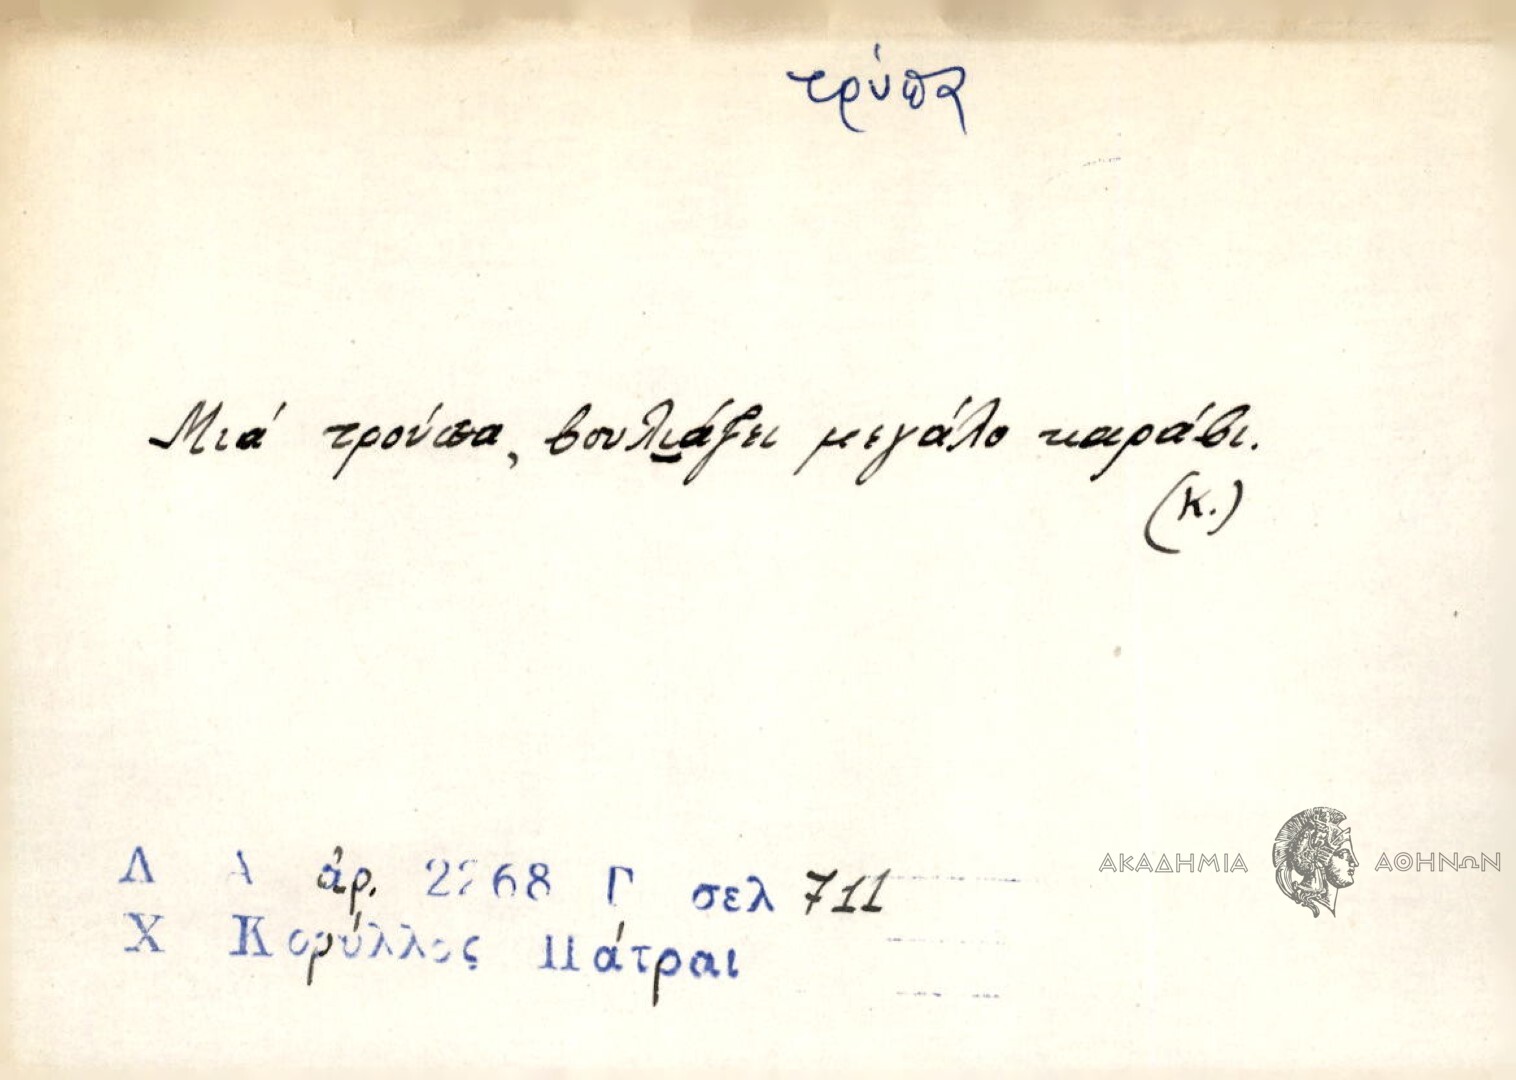 τρύπα
Μιά τρούπα, βουλιάζει μεγάλο καράβι.
(Κ.)
Λ Α ἀρ. 2268 Γ σελ 711
Χ Κορύλλος Πάτραι
ΑΚΑΔΗΜΙΑ ΑΘΗΝΩΝ